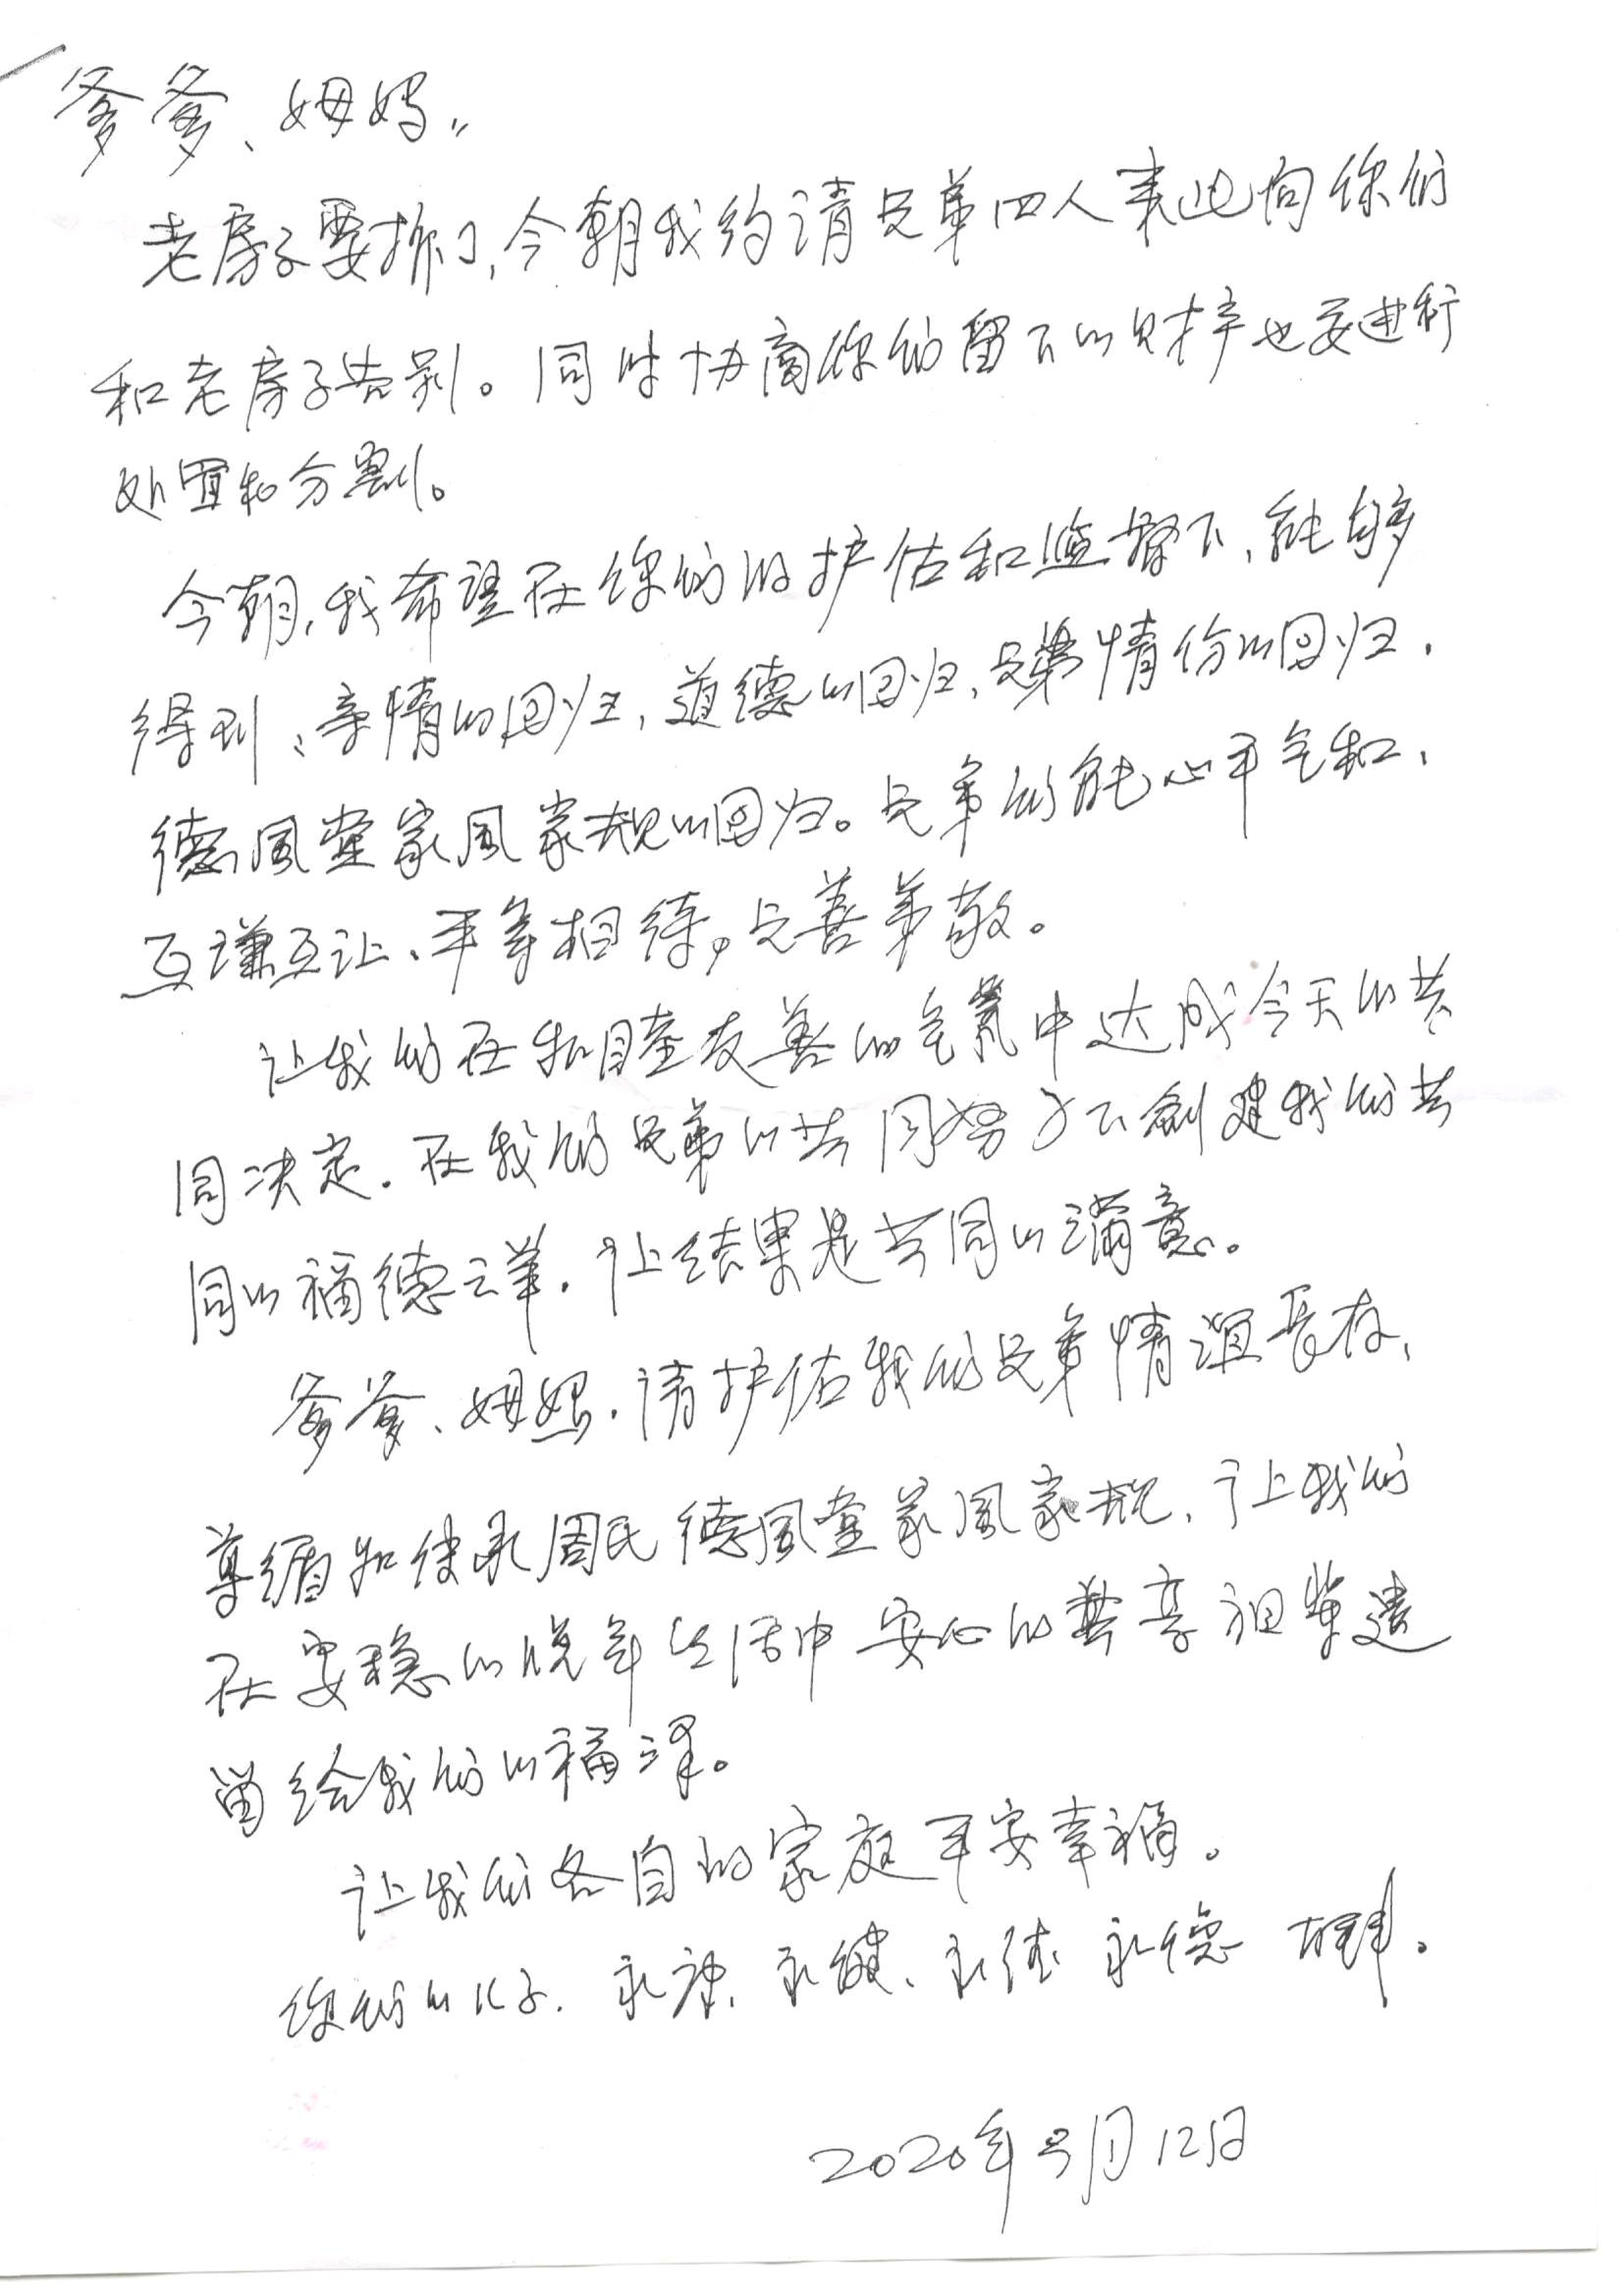 爹爹、姆妈：
老房子要拆了，今朝我约请兄弟四人来此向你们
和老房子告别。同时协商你们留下的财产也要进行
处置和分割。
今朝，我希望在你们的护佑和监督下，能够
得到：亲情的回归，道德的回归，兄弟情份的回归，
德风堂家风家规的回归。兄弟们能心平气和，
互谦互让、平等相待，兄善弟敬。
让我们在和睦友善的气氛中达成今天的共
同决定。在我们兄弟的共同努力下创建我们共
同的福德之举。让结果是共同的满意。
爹爹、姆妈，请护佑我们兄弟情谊长存，
尊循和继承周氏德风堂家风家规，让我们
在安稳的晚年生活中安心的共享祖辈遗
留给我们的福泽。
让我们各自的家庭平安幸福。
你们的儿子：永康、永健、永德
2020年8月12日